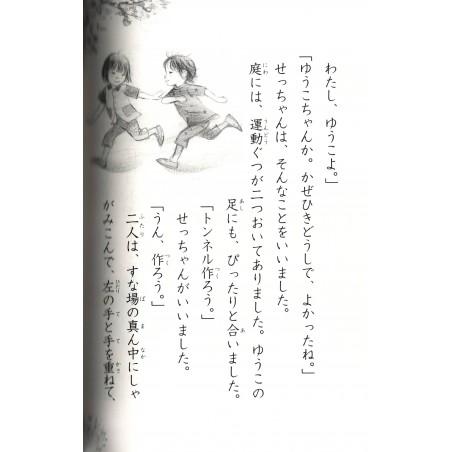 わたし、ゆうこよ。」
「ゆうこちゃんか。かぜひきどうしで、よかったね。」
せっちゃんは、そんなことをいいました。
庭には、運動ぐつが二つおいてありました。ゆうこの
足にも、ぴったりと合いました。
「トンネル作ろう。」
せっちゃんがいいました。
「うん、作ろう。」
二人は、すな場の真ん中にしゃ
がみこんで、左の手と手を重ねて、